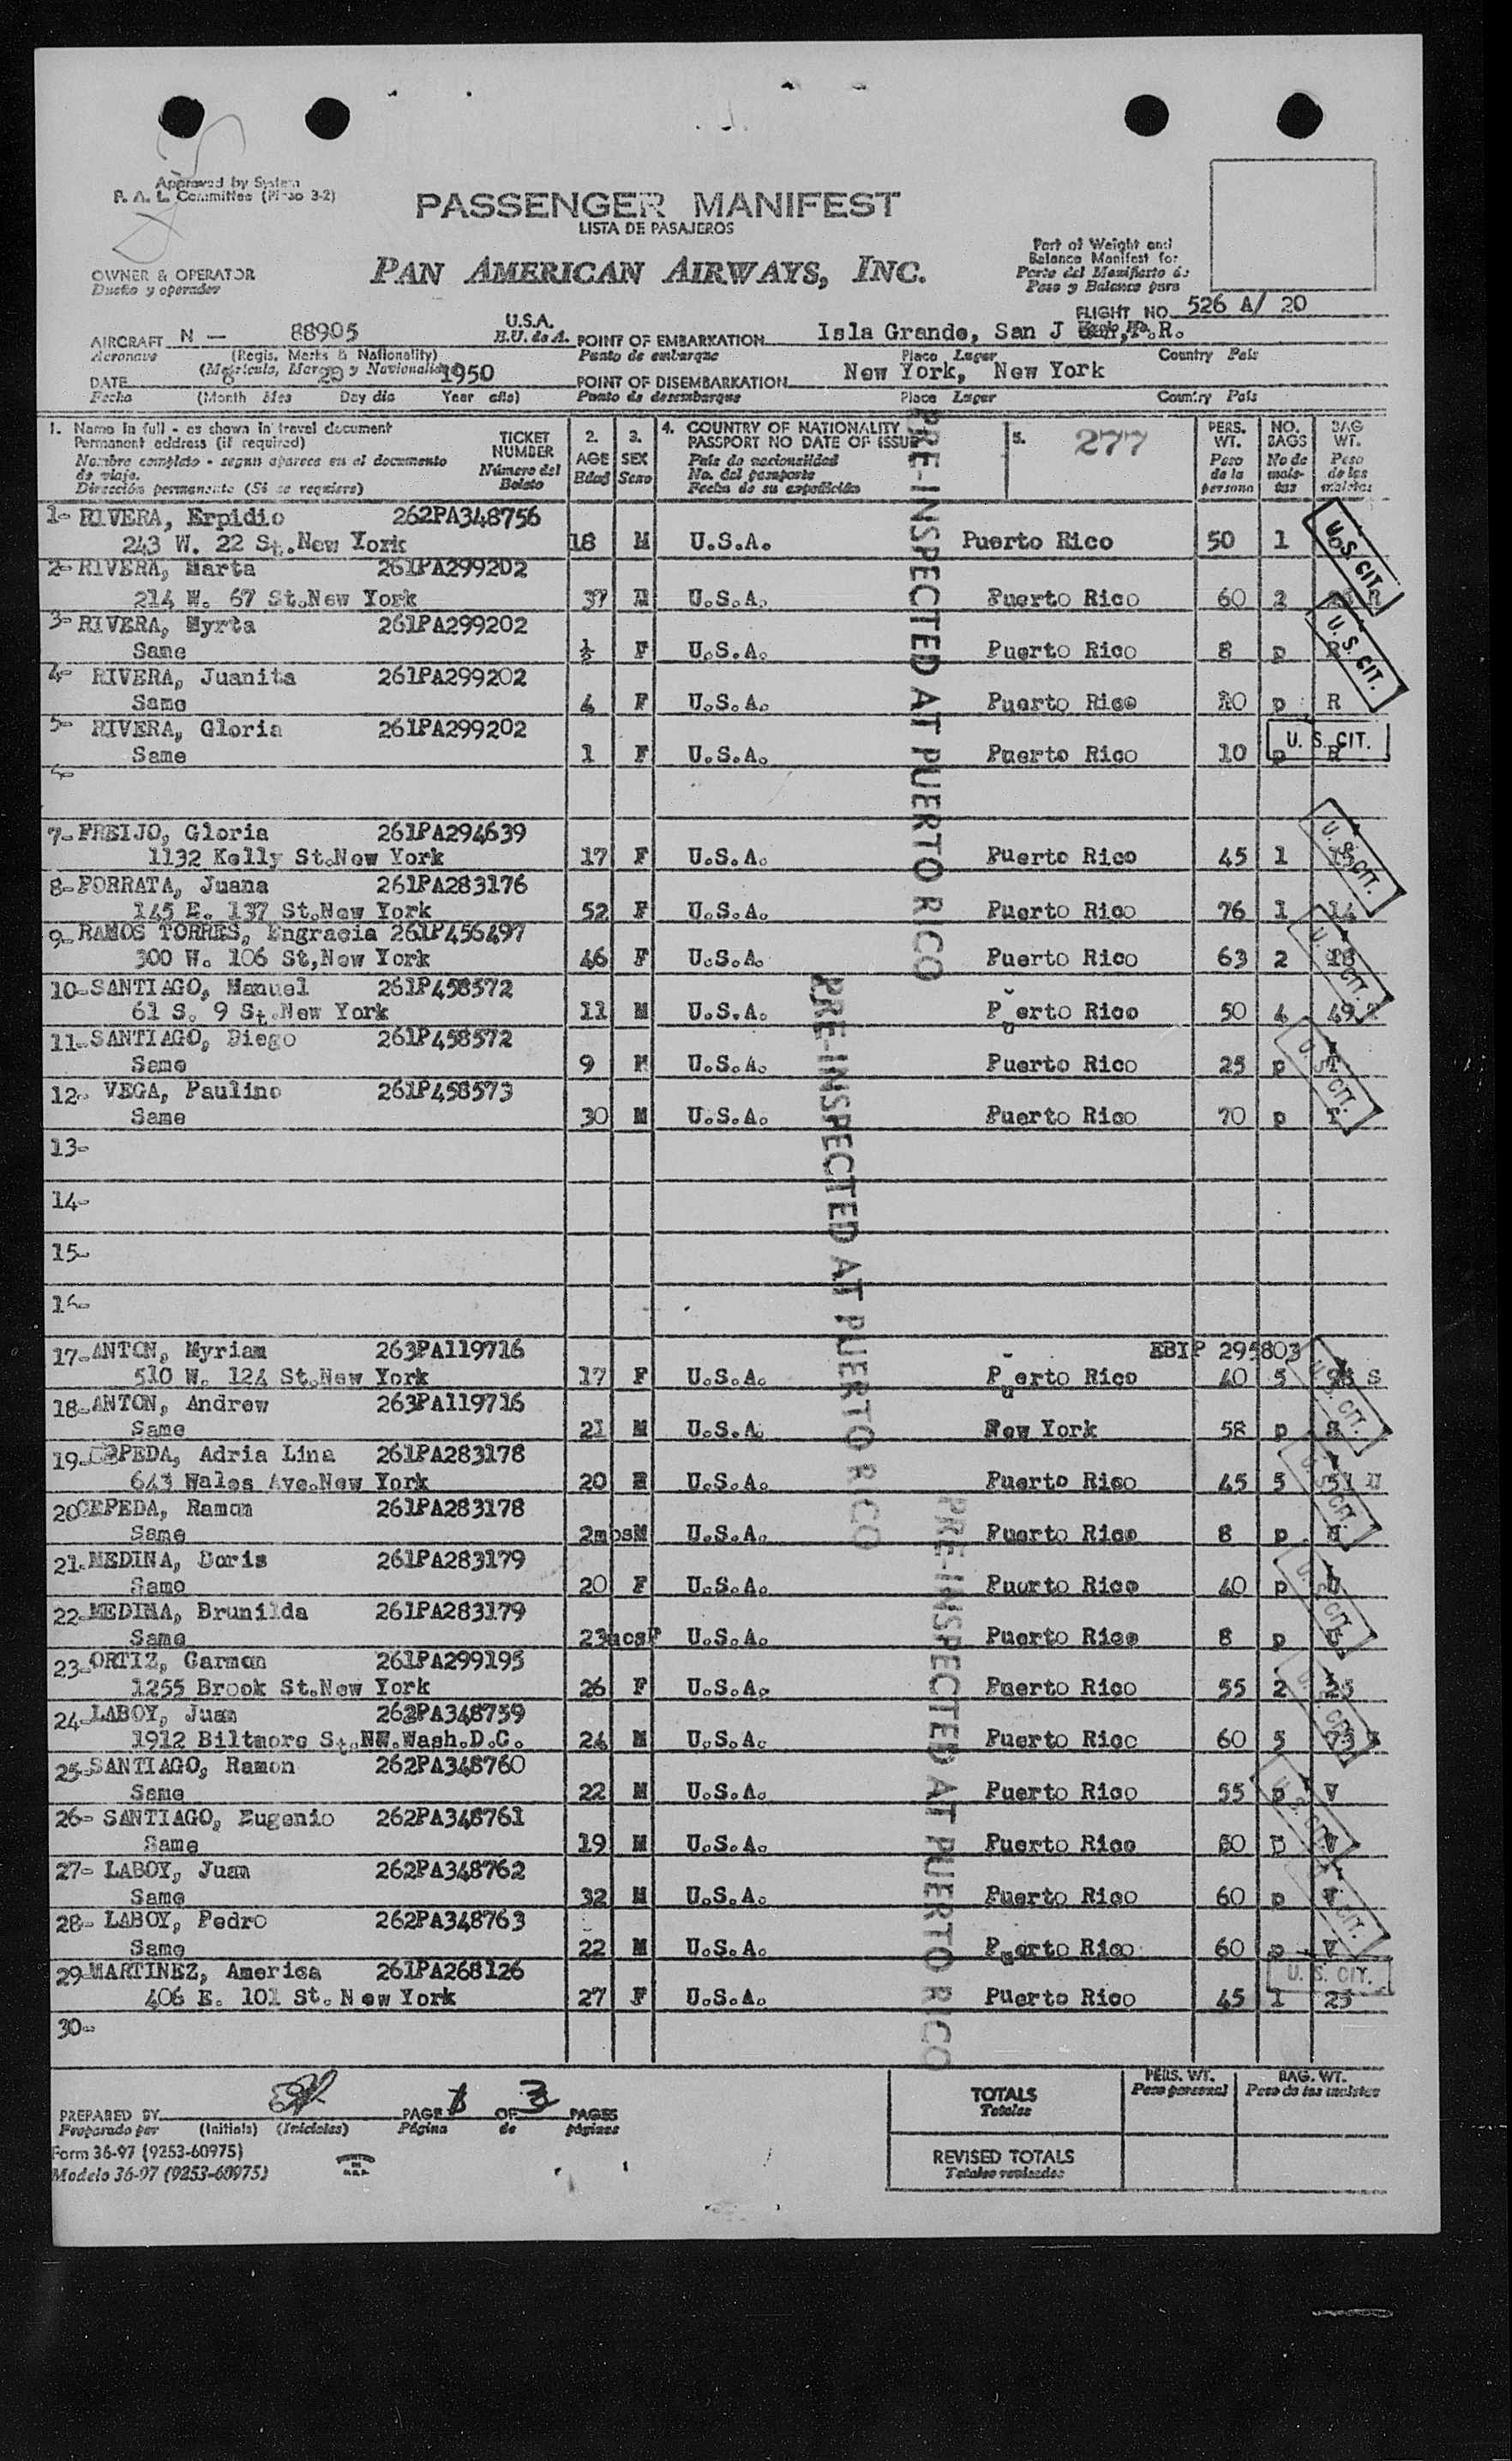 Approved by System
P. A. L. Committee (Piso 3-2)
PASSENGER MANIFEST
LISTA DE PASAJEROS
Part of Weight and
Balance Manifest for
Parte del Manifiesto de
Peso y Balance para
OWNER & OPERATOR
Dueño y operador
PAN AMERICAN AIRWAYS, INC.
FLIGHT NO. 526 A/ 20
AIRCRAFT N - 88905 U.S.A.
E.U. de A.
POINT OF EMBARKATION Isla Grande, San J P.R.
Aeronave (Regis. Marks & Nationality) Punto de embarque Place Lugar Country País
(Matrícula, Marcas y Nacionalidad)
DATE 8 20 1950 POINT OF DISEMBARKATION New York, New York
Fecha (Month Mes Day día Year año) Punto de desembarque Place Lugar Country País
1. Name in full - as shown in travel document
Permanent address (if required)
Nombre completo - segun aparece en el documento
de viaje.
Dirección permanente (Si se requiere)
TICKET
NUMBER
Número del
Boleto
2.
AGE
Edad
3.
SEX
Sexo
4. COUNTRY OF NATIONALITY
PASSPORT NO DATE OF ISSUE
País de nacionalidad
No. del pasaporte
Fecha de su expedición
5. 277
PERS.
WT.
Peso
de la
persona
NO.
BAGS
No de
male-
tas
BAG
WT.
Peso
de las
maletas
1- RIVERA, Erpidio 262PA348756
243 W. 22 St.New York 18 M U.S.A. Puerto Rico 50 1
2- RIVERA, Marta 261PA299202
214 W. 67 St.New York 37 U.S.A. Puerto Rico 60 2
3- RIVERA, Myrta 261PA299202
Same ½ F U.S.A. Puerto Rico 8 p R
4- RIVERA, Juanita 261PA299202
Same 4 F U.S.A. Puerto Rico 20 p R
5- RIVERA, Gloria 261PA299202
Same 1 F U.S.A. Puerto Rico 10 p R
6-
7- FREIJO, Gloria 261PA294639
1132 Kelly St.New York 17 F U.S.A. Puerto Rico 45 1
8- PORRATA, Juana 261PA283176
145 E. 137 St.New York 52 F U.S.A. Puerto Rico 76 1 14
9- RAMOS TORRES, Engracia 261P456497
300 W. 106 St,New York 46 F U.S.A. Puerto Rico 63 2 18
10- SANTIAGO, Manuel 261P458572
61 S. 9 St.New York 11 M U.S.A. Puerto Rico 50 4 49
11- SANTIAGO, Diego 261P458572
Same 9 M U.S.A. Puerto Rico 25 p
12- VEGA, Paulino 261P458573
Same 30 M U.S.A. Puerto Rico 70 p
13-
14-
15-
16-
17- ANTON, Myriam 263PA119716 EBIP 295803
510 W. 124 St.New York 17 F U.S.A. Puerto Rico 40 5 S
18- ANTON, Andrew 263PA119716
Same 21 M U.S.A. New York 58 p S
19- CEPEDA, Adria Lina 261PA283178
643 Wales Ave.New York 20 U.S.A. Puerto Rico 45 5 51 U
20 CEPEDA, Ramon 261PA283178
Same 2mosM U.S.A. Puerto Rico 8 p U
21- MEDINA, Doris 261PA283179
Same 20 F U.S.A. Puerto Rico 40 p U
22- MEDINA, Brunilda 261PA283179
Same 23mosF U.S.A. Puerto Rico 8 p U
23- ORTIZ, Carmen 261PA299195
1255 Brook St.New York 26 F U.S.A. Puerto Rico 55 2 25
24- LABOY, Juan 262PA348759
1912 Biltmore St.NW.Wash.D.C. 24 M U.S.A. Puerto Rico 60 5 73
25- SANTIAGO, Ramon 262PA348760
Same 22 M U.S.A. Puerto Rico 55 p V
26- SANTIAGO, Eugenio 262PA348761
Same 19 M U.S.A. Puerto Rico 60 p V
27- LABOY, Juan 262PA348762
Same 32 M U.S.A. Puerto Rico 60 p V
28- LABOY, Pedro 262PA348763
Same 22 M U.S.A. Puerto Rico 60 p V
29- MARTINEZ, America 261PA268126
406 E. 101 St. New York 27 F U.S.A. Puerto Rico 45 1 25
30-
PRE-INSPECTED AT PUERTO RICO
PRE-INSPECTED AT PUERTO RICO
PRE-INSPECTED AT PUERTO RICO
U. S. CIT.
U. S. CIT.
U. S. CIT.
U. S. CIT.
U. S. CIT.
U. S. CIT.
U. S. CIT.
U. S. CIT.
U. S. CIT.
U. S. CIT.
U. S. CIT.
U. S. CIT.
U. S. CIT.
PREPARED BY PAGE 1 OF 3 PAGES
Preparado por (Initials) (Iniciales) Página de páginas
Form 36-97 (9253-60975)
Modelo 36-97 (9253-60975)
PRINTED
IN
U.S.A.
TOTALS
Totales
PERS. WT.
Peso personal
BAG. WT.
Peso de las maletas
REVISED TOTALS
Totales revisados